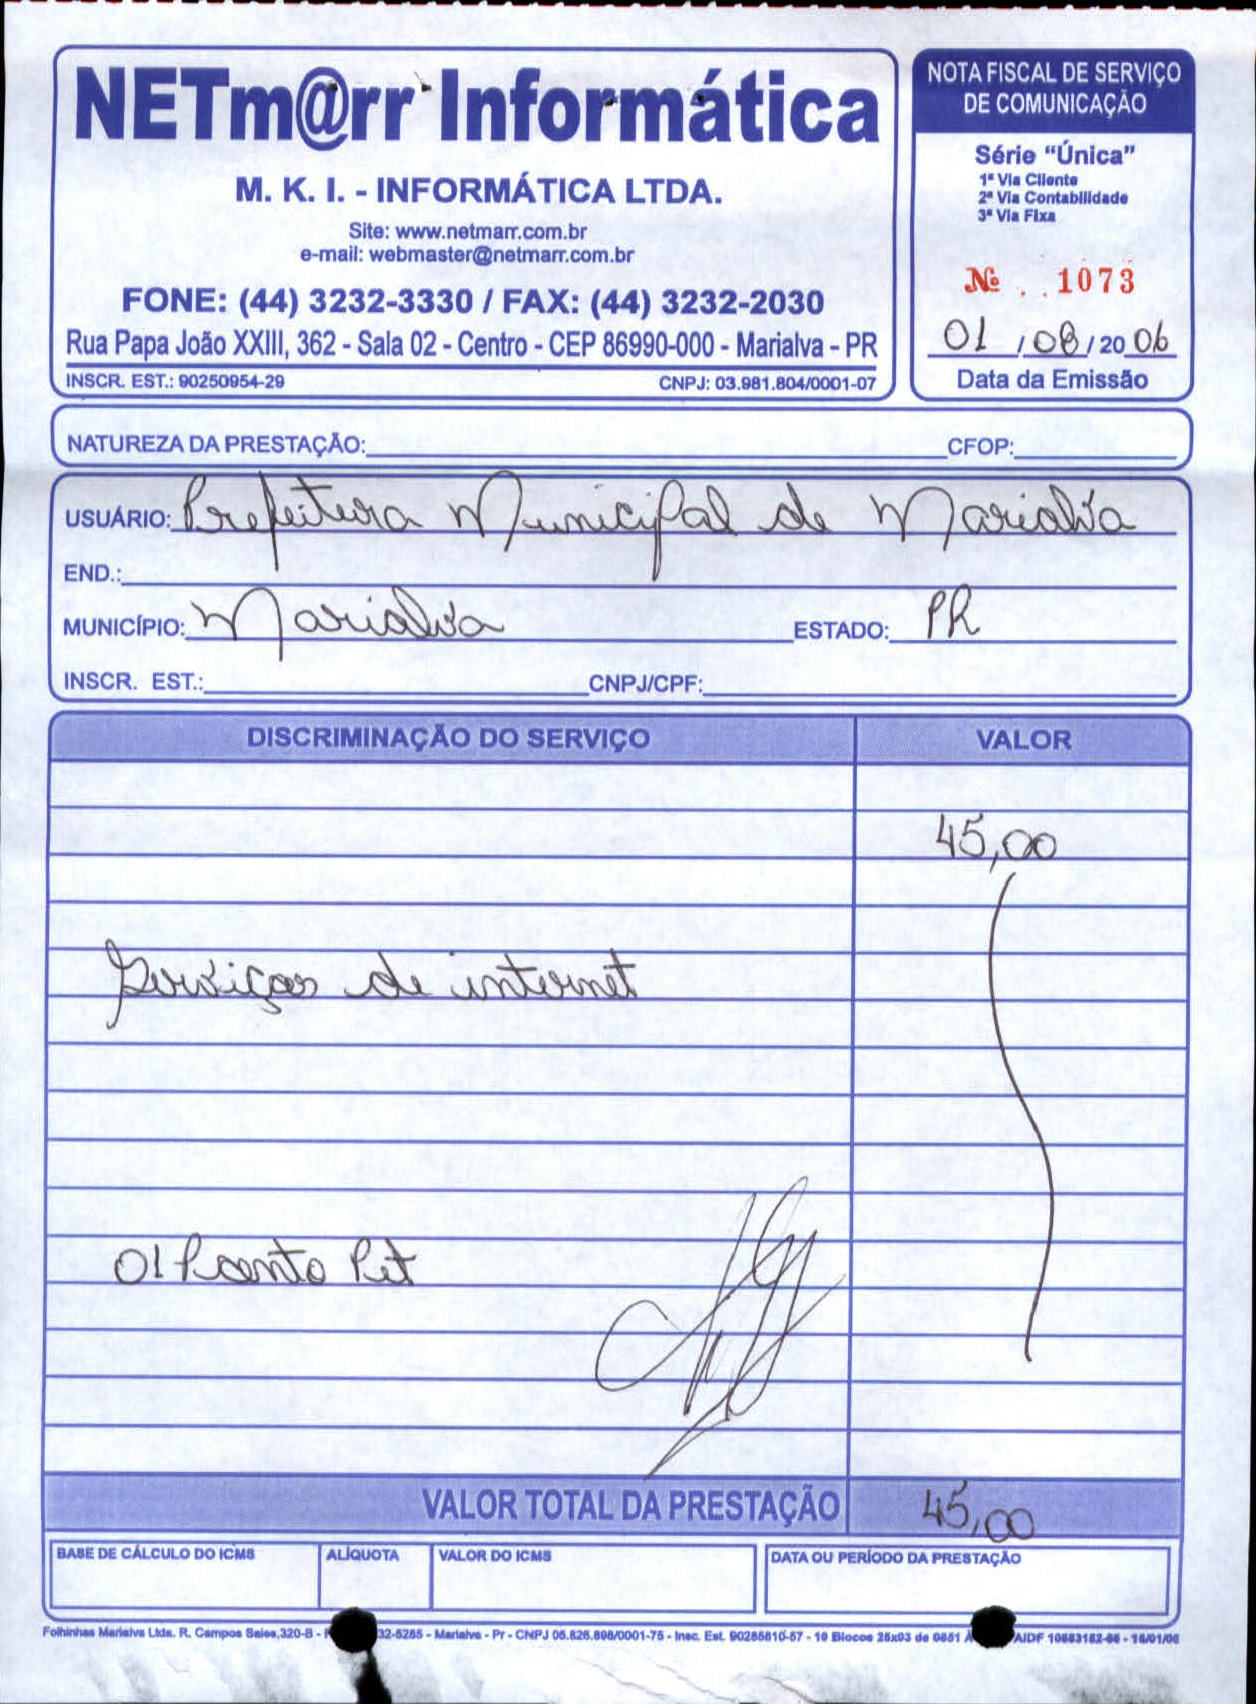 NETm@rr Informática
M. K. I. - INFORMÁTICA LTDA.
Site: www.netmarr.com.br
e-mail: webmaster@netmarr.com.br
FONE: (44) 3232-3330 / FAX: (44) 3232-2030
Rua Papa João XXIII, 362 - Sala 02 - Centro - CEP 86990-000 - Marialva - PR
INSCR. EST.: 90250954-29 CNPJ: 03.981.804/0001-07
NOTA FISCAL DE SERVIÇO
DE COMUNICAÇÃO
Série “Única”
1ª Via Cliente
2ª Via Contabilidade
3ª Via Fixa
Nº 1073
01 / 08 / 20 06
Data da Emissão
NATUREZA DA PRESTAÇÃO: CFOP:
USUÁRIO: Prefeitura Municipal de Marialva
END.:
MUNICÍPIO: Marialva ESTADO: PR
INSCR. EST.: CNPJ/CPF:
DISCRIMINAÇÃO DO SERVIÇO VALOR
45,00
Serviços de internet
01 Ponto
VALOR TOTAL DA PRESTAÇÃO 45,00
BASE DE CÁLCULO DO ICMS ALÍQUOTA VALOR DO ICMS DATA OU PERÍODO DA PRESTAÇÃO
Folhinhas Marialva Ltda. R. Campos Sales,320-B - 32-5285 - Marialva - Pr - CNPJ 05.826.898/0001-75 - Insc. Est. 90285810-57 - 10 Blocos 25x03 de 0851 À AIDF - 16/01/06